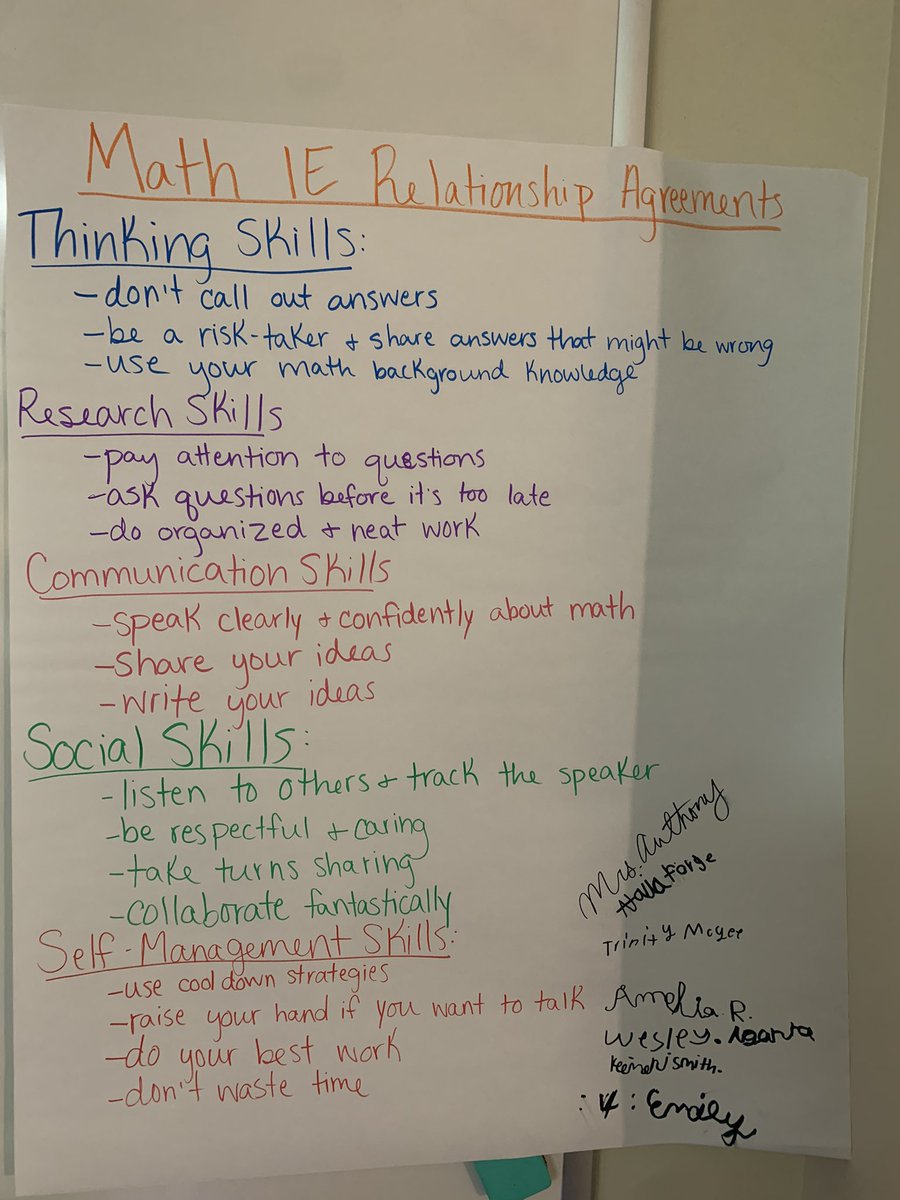 Math IE Relationship Agreements
Thinking Skills:
-don't call out answers
-be a risk-taker + share answers that might be wrong
-use your math background knowledge
Research Skills
-pay attention to questions
-ask questions before it's too late
-do organized + neat work
Communication Skills
-speak clearly + confidently about math
-share your ideas
-write your ideas
Social Skills:
-listen to others + track the speaker
-be respectful + caring
-take turns sharing
-collaborate fantastically
Self-Management Skills:
-use cool down strategies
-raise your hand if you want to talk
-do your best work
-don't waste time
Mrs. Anthony
Forge
Trinity McGee
Amelia R.
Wesley.
smith.
Emily